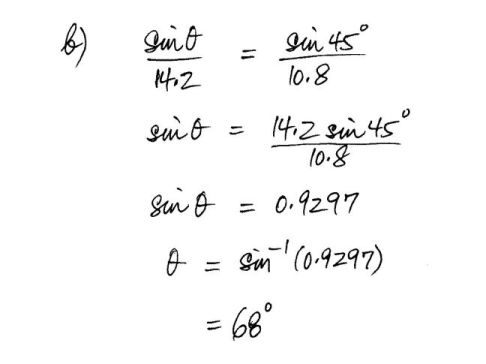 b) sinθ/14.2 = sin 45°/10.8
sinθ = 14.2 sin 45°/10.8
sinθ = 0.9297
θ = sin⁻¹(0.9297)
= 68°